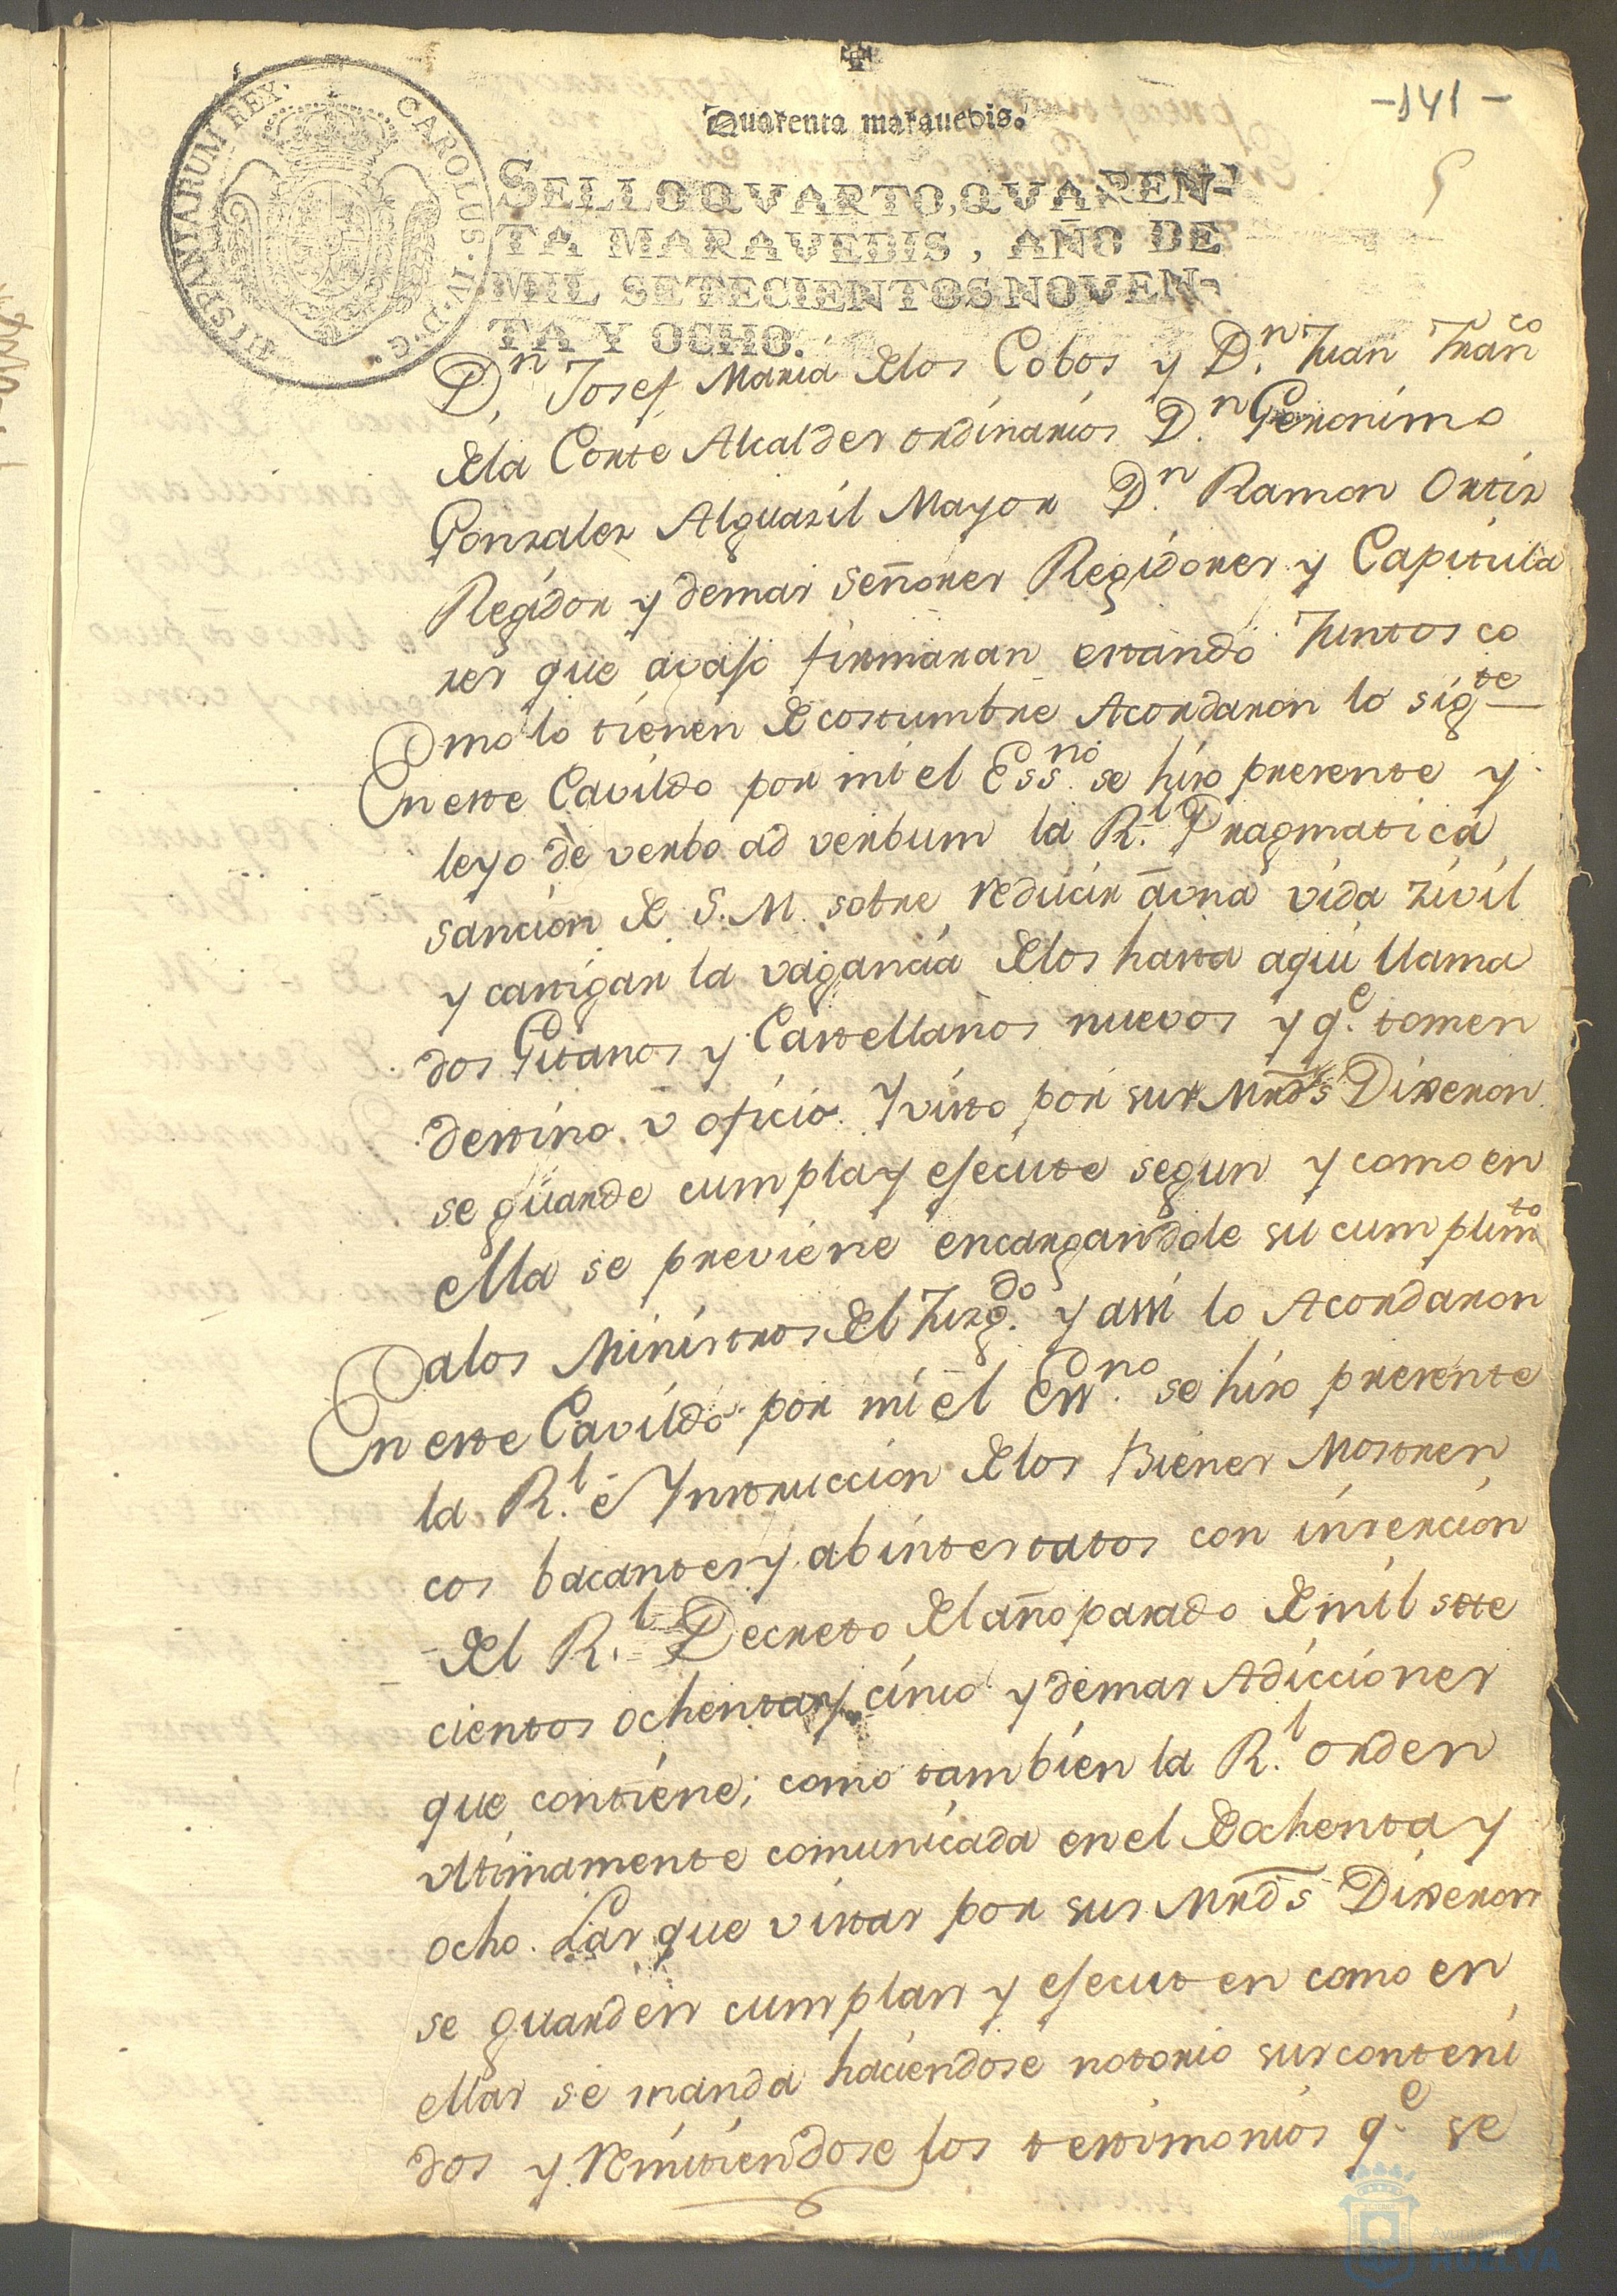 -141-
Quarenta maravedis.
SELLO QVARTO, QVAREN-
TA MARAVEDIS, AÑO DE
MIL SETECIENTOS NOVEN-
TA Y OCHO.
CAROLUS·IV·D·G· HISPANIARUM REX·
Dn. Josef Maria delos Cobos y Dn. Juan Franco
dela Corte Alcaldes ordinarios Dn. Geronimo
Gonzalez Alguazil Mayor Dn. Ramon Ortiz
Regidor y demas señores Regidores y Capitula
res que avajo firmaran estando Juntos co
mo lo tienen de costumbre Acordaron lo sigte
En este Cavildo por mi el Essno. se hizo presente y
leyo de verbo ad verbum la Rl. Pragmatica
sancion de S.M. sobre reducir a una vida zivil
y castigar la vagancia delos hasta aqui llama
dos Gitanos y Castellanos nuevos y qe. tomen
destino v oficio. Y visto por sus Mrds Dixeron
se guarde cumpla y ejecute segun y como en
ella se previene encargandole su cumplimto
alos Ministros del Juzgdo. y assi lo Acordaron
En este Cavildo por mi el Essno. se hizo presente
la Rl. e Ynstruccion delos Bienes Mostren
cos bacantes y abintestatos con insercion
del Rl. Decreto del año pasado de mil sete
cientos ochenta y cinco y demas Adicciones
que contiene; como tambien la Rl. orden
vltimamente comunicada en el de ochenta y
ocho. Las que vistas por sus Mrds Dixeron
se guarden cumplan y ejecuten como en
ellas se manda haciendose notorio sus conteni
dos y Remitiendose los testimonios qe. se
Ayuntamiento de
HUELVA